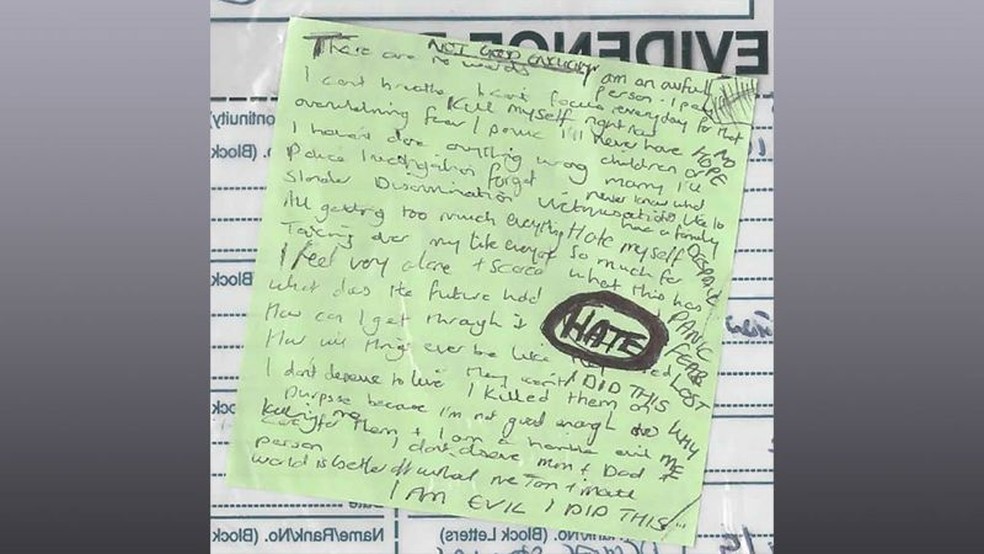 EVIDENCE
There are no words
NOT GOOD ENOUGH
I am an awful
person I pay
everyday for that
I cant breathe I cant focus
Kill myself right now
overwhelming fear / panic I'll never have
NO HOPE
children or
I haven't done anything wrong
marry I'll
Police Investigation forget
never know what
it's like to
Slander Discrimination Victimisation
have a family
All getting too much everything
Hate myself
so much for
DESPAIR
Taking over my life everyone
what this has
I feel very alone + scared
PANIC
What does the future hold
HATE
FEAR
How can I get through it
LOST
How will things ever be like they
They won't
I DID THIS
I don't deserve to live
I killed them on
WHY
purpose because I'm not good enough to
ME
care for them + I am a horrible evil
Killing me
person
I dont deserve Mum + Dad +
world is better off without me
I AM EVIL I DID THIS
(Block Letters)
Name/Rank/No. (Block
Continuity)
No. (Block)